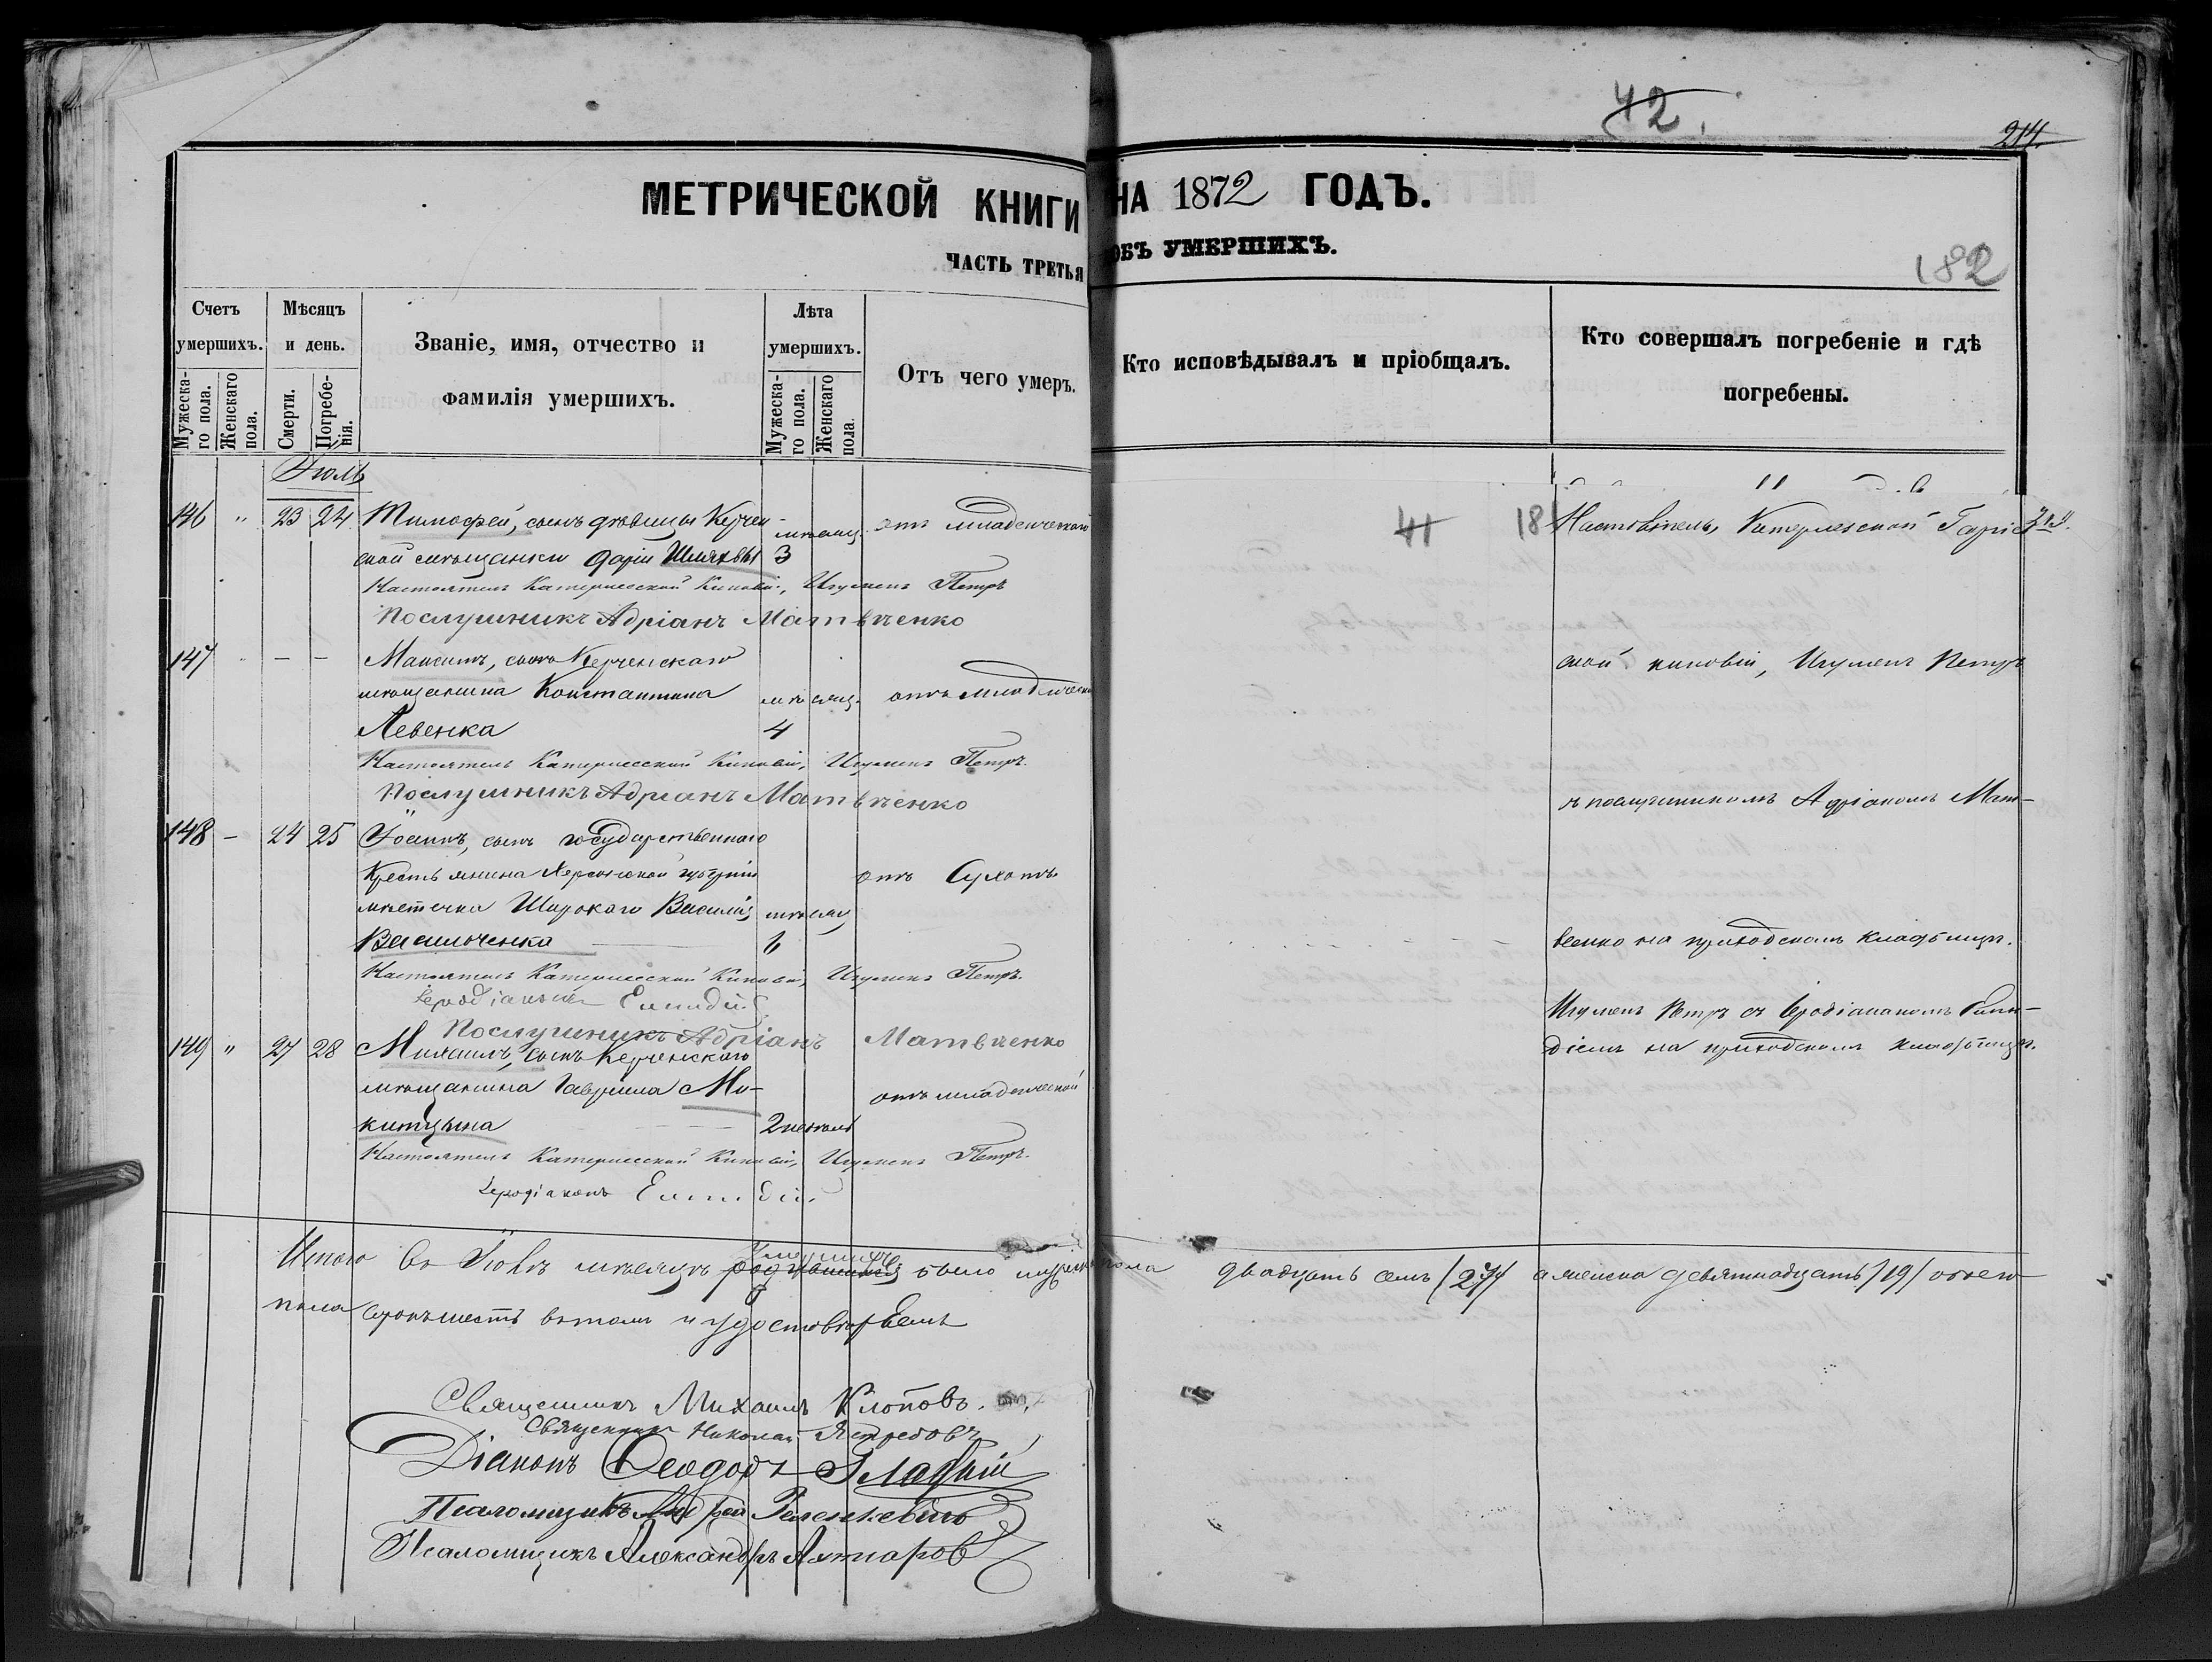 42.
214.
МЕТРИЧЕСКОЙ КНИГИ НА 1872 ГОДЪ.
ЧАСТЬ ТРЕТЬЯ ОБЪ УМЕРШИХЪ.
182
Счетъ умершихъ.
Мужеска-го пола.
Женскаго пола.
Мѣсяцъ и день.
Смерти.
Погребе-нія.
Званіе, имя, отчество и фамилія умершихъ.
Лѣта умершихъ.
Мужеска-го пола.
Женскаго пола.
Отъ чего умеръ.
Кто исповѣдывалъ и пріобщалъ.
Кто совершалъ погребеніе и гдѣ погребены.
Іюль
146 " 23 24 Тимофей, сынъ дѣвицы Керчен- мѣсяц. отъ младенческой
ской мѣщанки Даріи Шляхвы 3
41 18 Настоятель, Катерлезской
Настоятель Катерлесской Киновіи, Игуменъ Петръ
Послушникъ Адріанъ Матвѣенко
147 - - - Максимъ, сынъ Керченскаго
мѣщанина Константина мѣсяц. отъ младенческой
Левенка 4
ской киновіи, Игуменъ Петръ
Настоятель Катерлесской Киновіи, Игуменъ Петръ.
Послушникъ Адріанъ Матвѣенко
съ послушникомъ Адріаномъ Мат-
148 - 24 25 Іоаннъ, сынъ государственнаго
крестьянина Херсонской губерніи отъ Сухотъ
мѣстечка Широкаго Василія мѣсяц
Василюченка 6
вѣенко на приходскомъ кладбищѣ.
Настоятель Катерлесской Киновіи, Игуменъ Петръ.
Іеродіаконъ
Послушникъ Адріанъ Матвѣенко
Игуменъ Петръ съ Іеродіакономъ
149 " 27 28 Михаилъ, сынъ Керченскаго
діемъ на приходскомъ кладбищѣ.
мѣщанина Гавріила Ми- отъ младенческой
китцына 2 недѣли
Настоятель Катерлесской Киновіи, Игуменъ Петръ.
Іеродіаконъ
Итого въ Іюлѣ мѣсяцѣ умершихъ было мужеска пола двадцать семь /27/ а женска девятнадцать /19/ обоего
пола сорокъ шесть въ томъ и удостовѣряемъ
Священникъ Михаилъ Клоповъ.
Священникъ Николай Ястребовъ
Діаконъ Ѳеодоръ
Псаломщикъ Андрей
Псаломщикъ Александръ Ахтаровъ